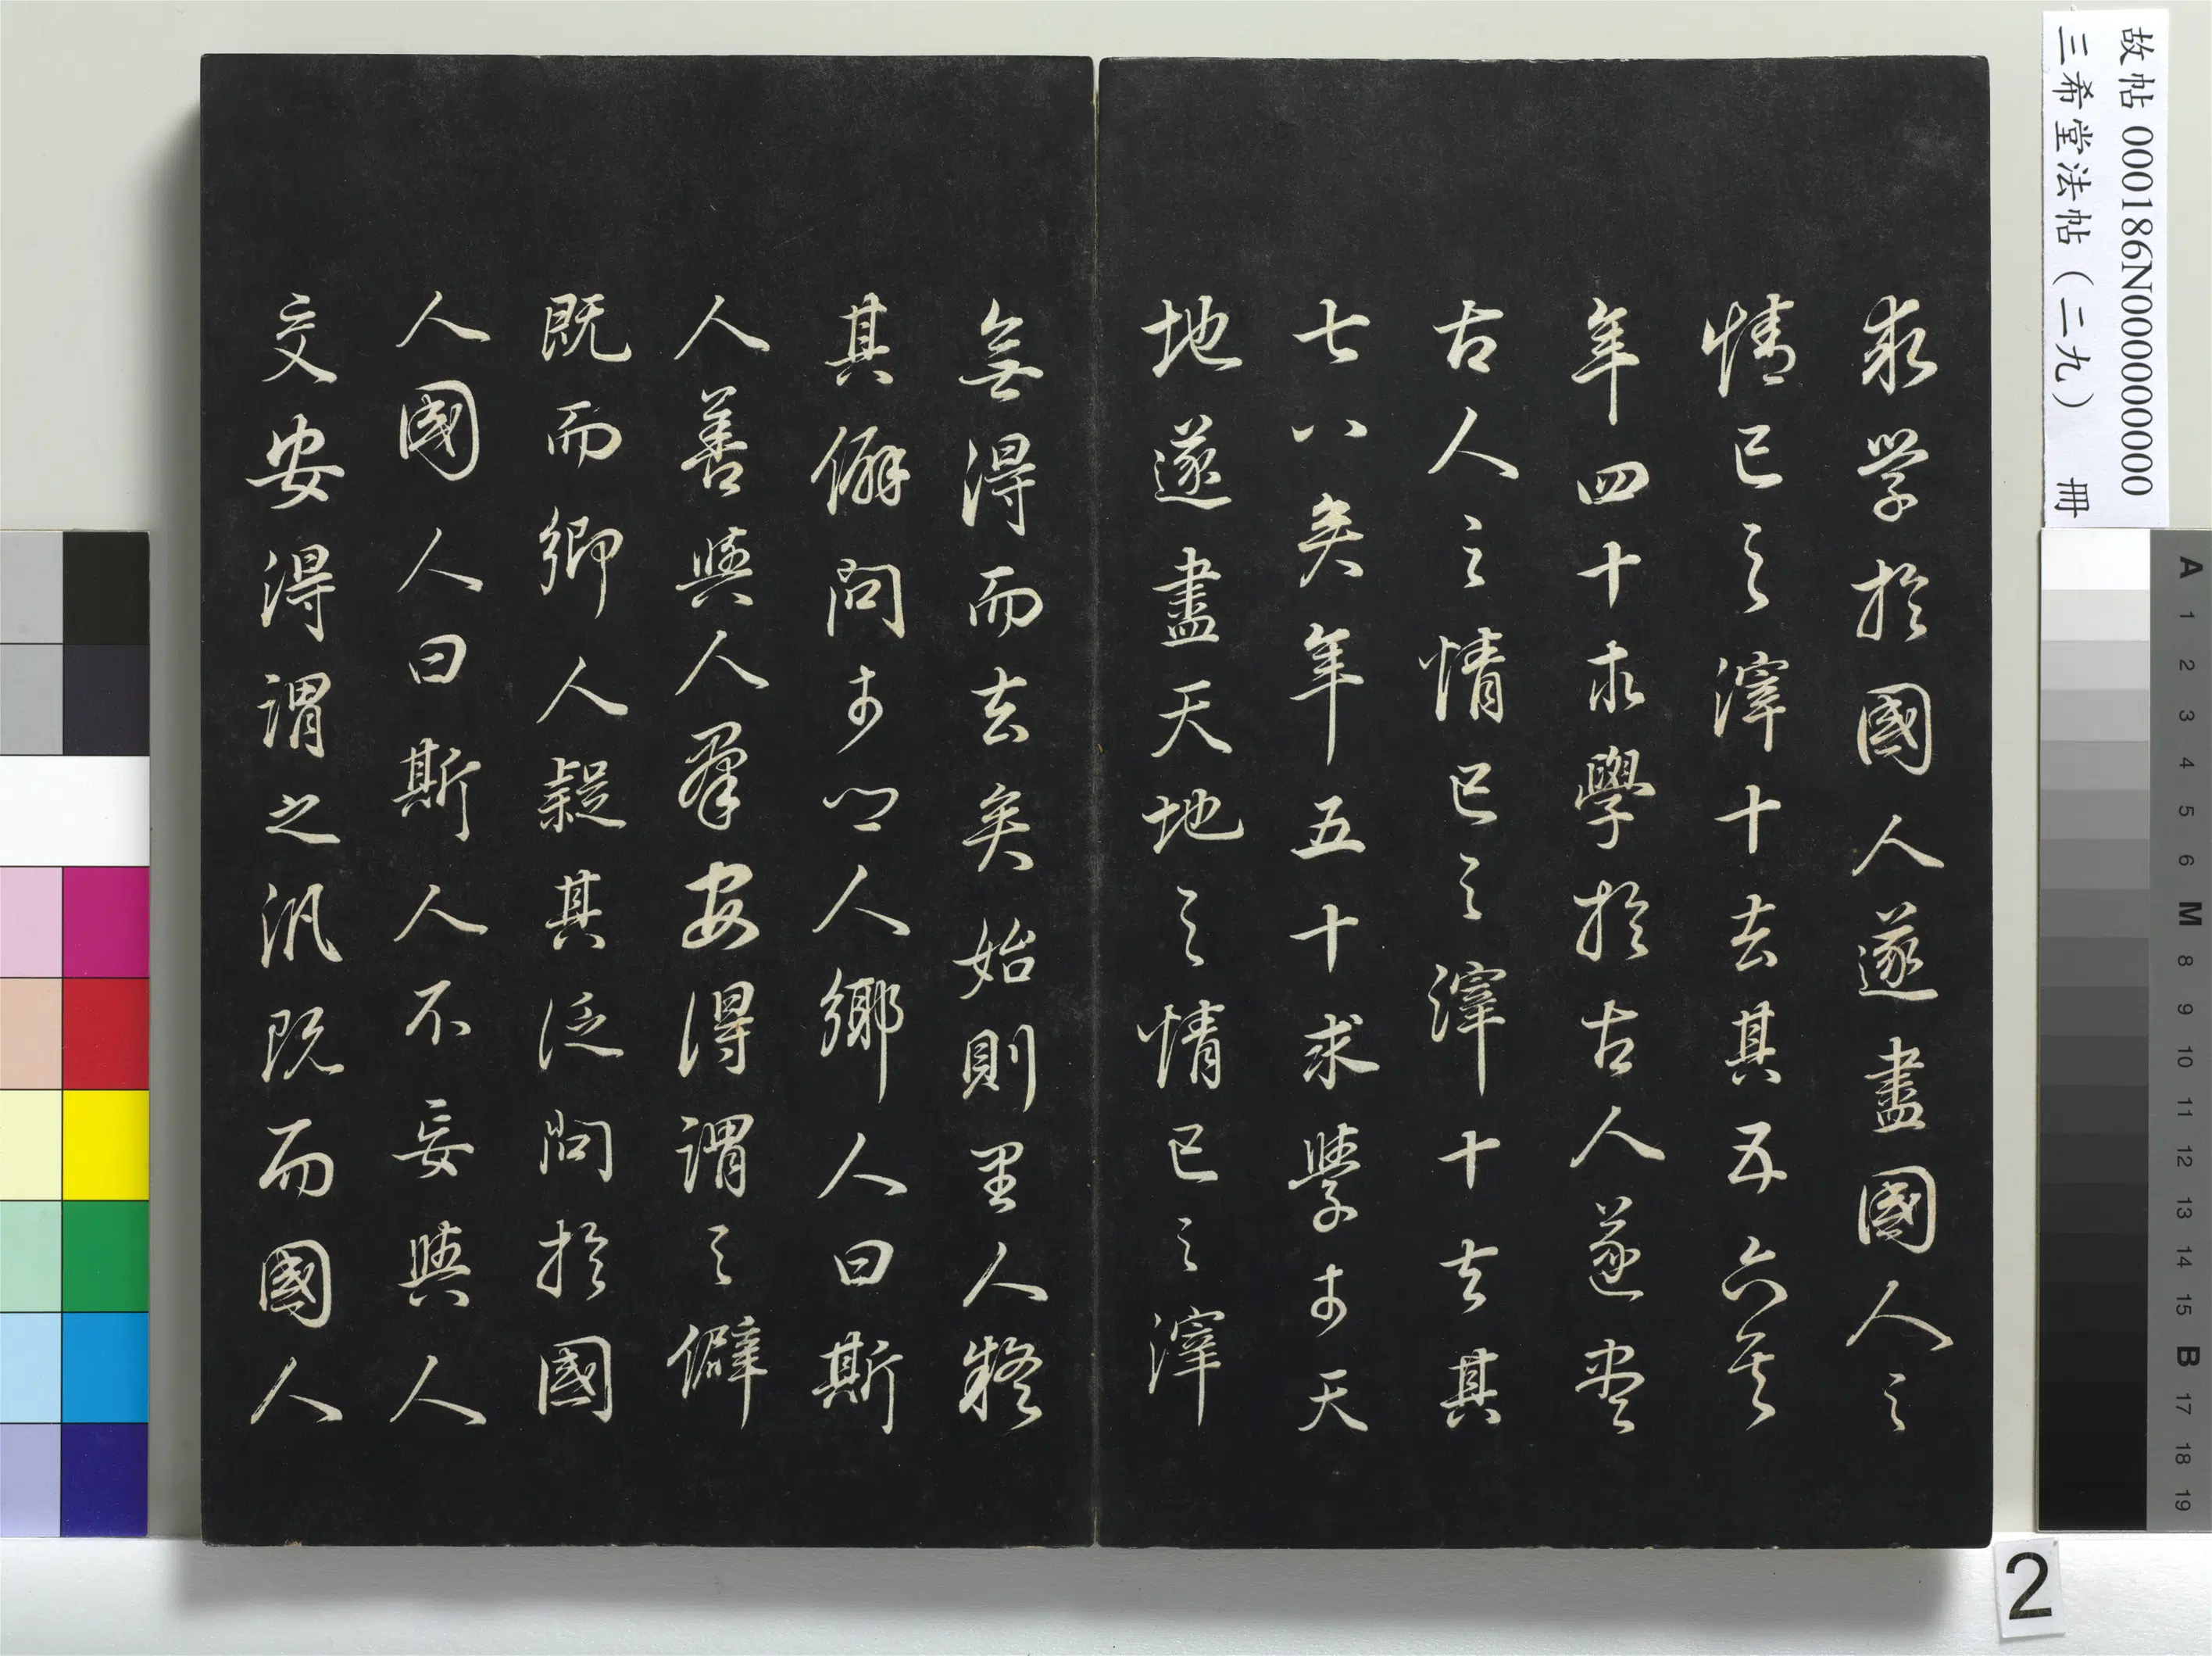 求學於國人遂盡國人之
情已之滓十去其五六矣
年四十求學於古人遂盡
古人之情已之滓十去其
七八矣年五十求學於天
地遂盡天地之情已之滓
無得而去矣始則里人疑
其僻問於鄉人鄉人曰斯
人善與人群安得謂之僻
既而鄉人疑其泛問於國
人國人曰斯人不妄與人
交安得謂之汎既而國人
故帖 000186N000000000
三希堂法帖(二九) 冊
A 1 2 3 4 5 6 M 8 9 10 11 12 13 14 15 B 17 18 19
2